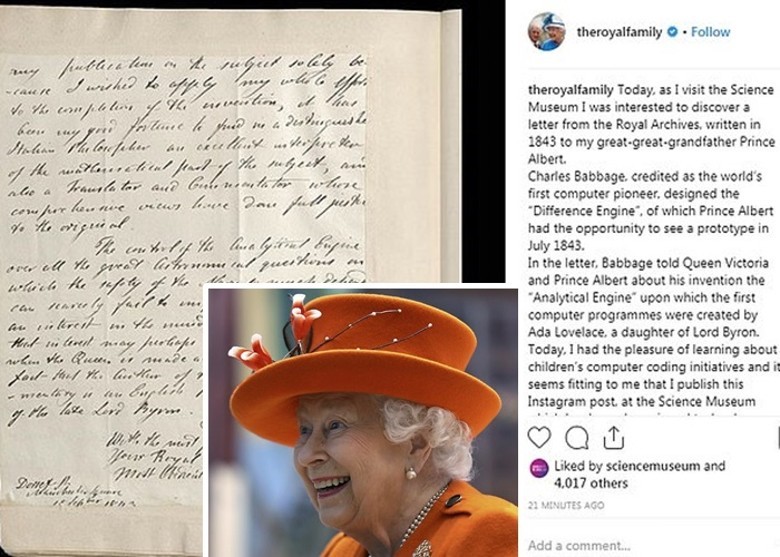 my publication on the subject solely be
-cause I wished to apply my whole
to the completion of the invention, it has
been my good fortune to find in a distinguishe
Italian Philosopher an excellent
of the mathematical part of the subject, and
also a Translator and Commentator whose
comprehensive views have done full
to the original.
The control of the Analytical Engine
over all the great Astronomical questions on
which the safety of the
can scarcely fail to
an interest in the mind
that interest may perhaps
when the Queen is made a
fact that the author of
-mentary is an English
of the late Lord Byron.
With the most
Your Royal
Most
Dorset
Manchester Square
theroyalfamily • Follow
theroyalfamily Today, as I visit the Science
Museum I was interested to discover a
letter from the Royal Archives, written in
1843 to my great-great-grandfather Prince
Albert.
Charles Babbage, credited as the world's
first computer pioneer, designed the
“Difference Engine”, of which Prince Albert
had the opportunity to see a prototype in
July 1843.
In the letter, Babbage told Queen Victoria
and Prince Albert about his invention the
“Analytical Engine” upon which the first
computer programmes were created by
Ada Lovelace, a daughter of Lord Byron.
Today, I had the pleasure of learning about
children's computer coding initiatives and it
seems fitting to me that I publish this
Instagram post, at the Science Museum
Liked by sciencemuseum and
4,017 others
21 MINUTES AGO
Add a comment...